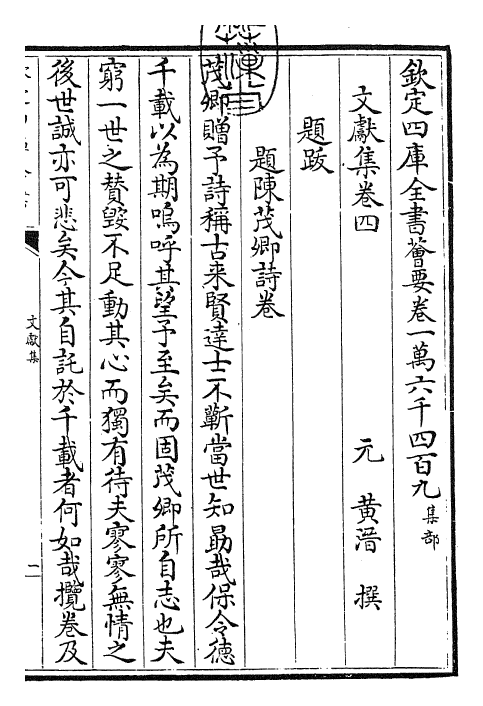 欽定四庫全書薈要卷一萬六千四百九集部
文獻集卷四
元 黄溍 撰
題跋
題陳茂卿詩卷
茂卿贈予詩稱古来賢達士不蘄當世知勗哉保令德
千載以為期嗚呼其望予至矣而固茂卿所自志也夫
窮一世之賛毁不足動其心而獨有待夫寥寥無情之
後世誠亦可悲矣今其自託於千載者何如哉攬卷及
文獻集